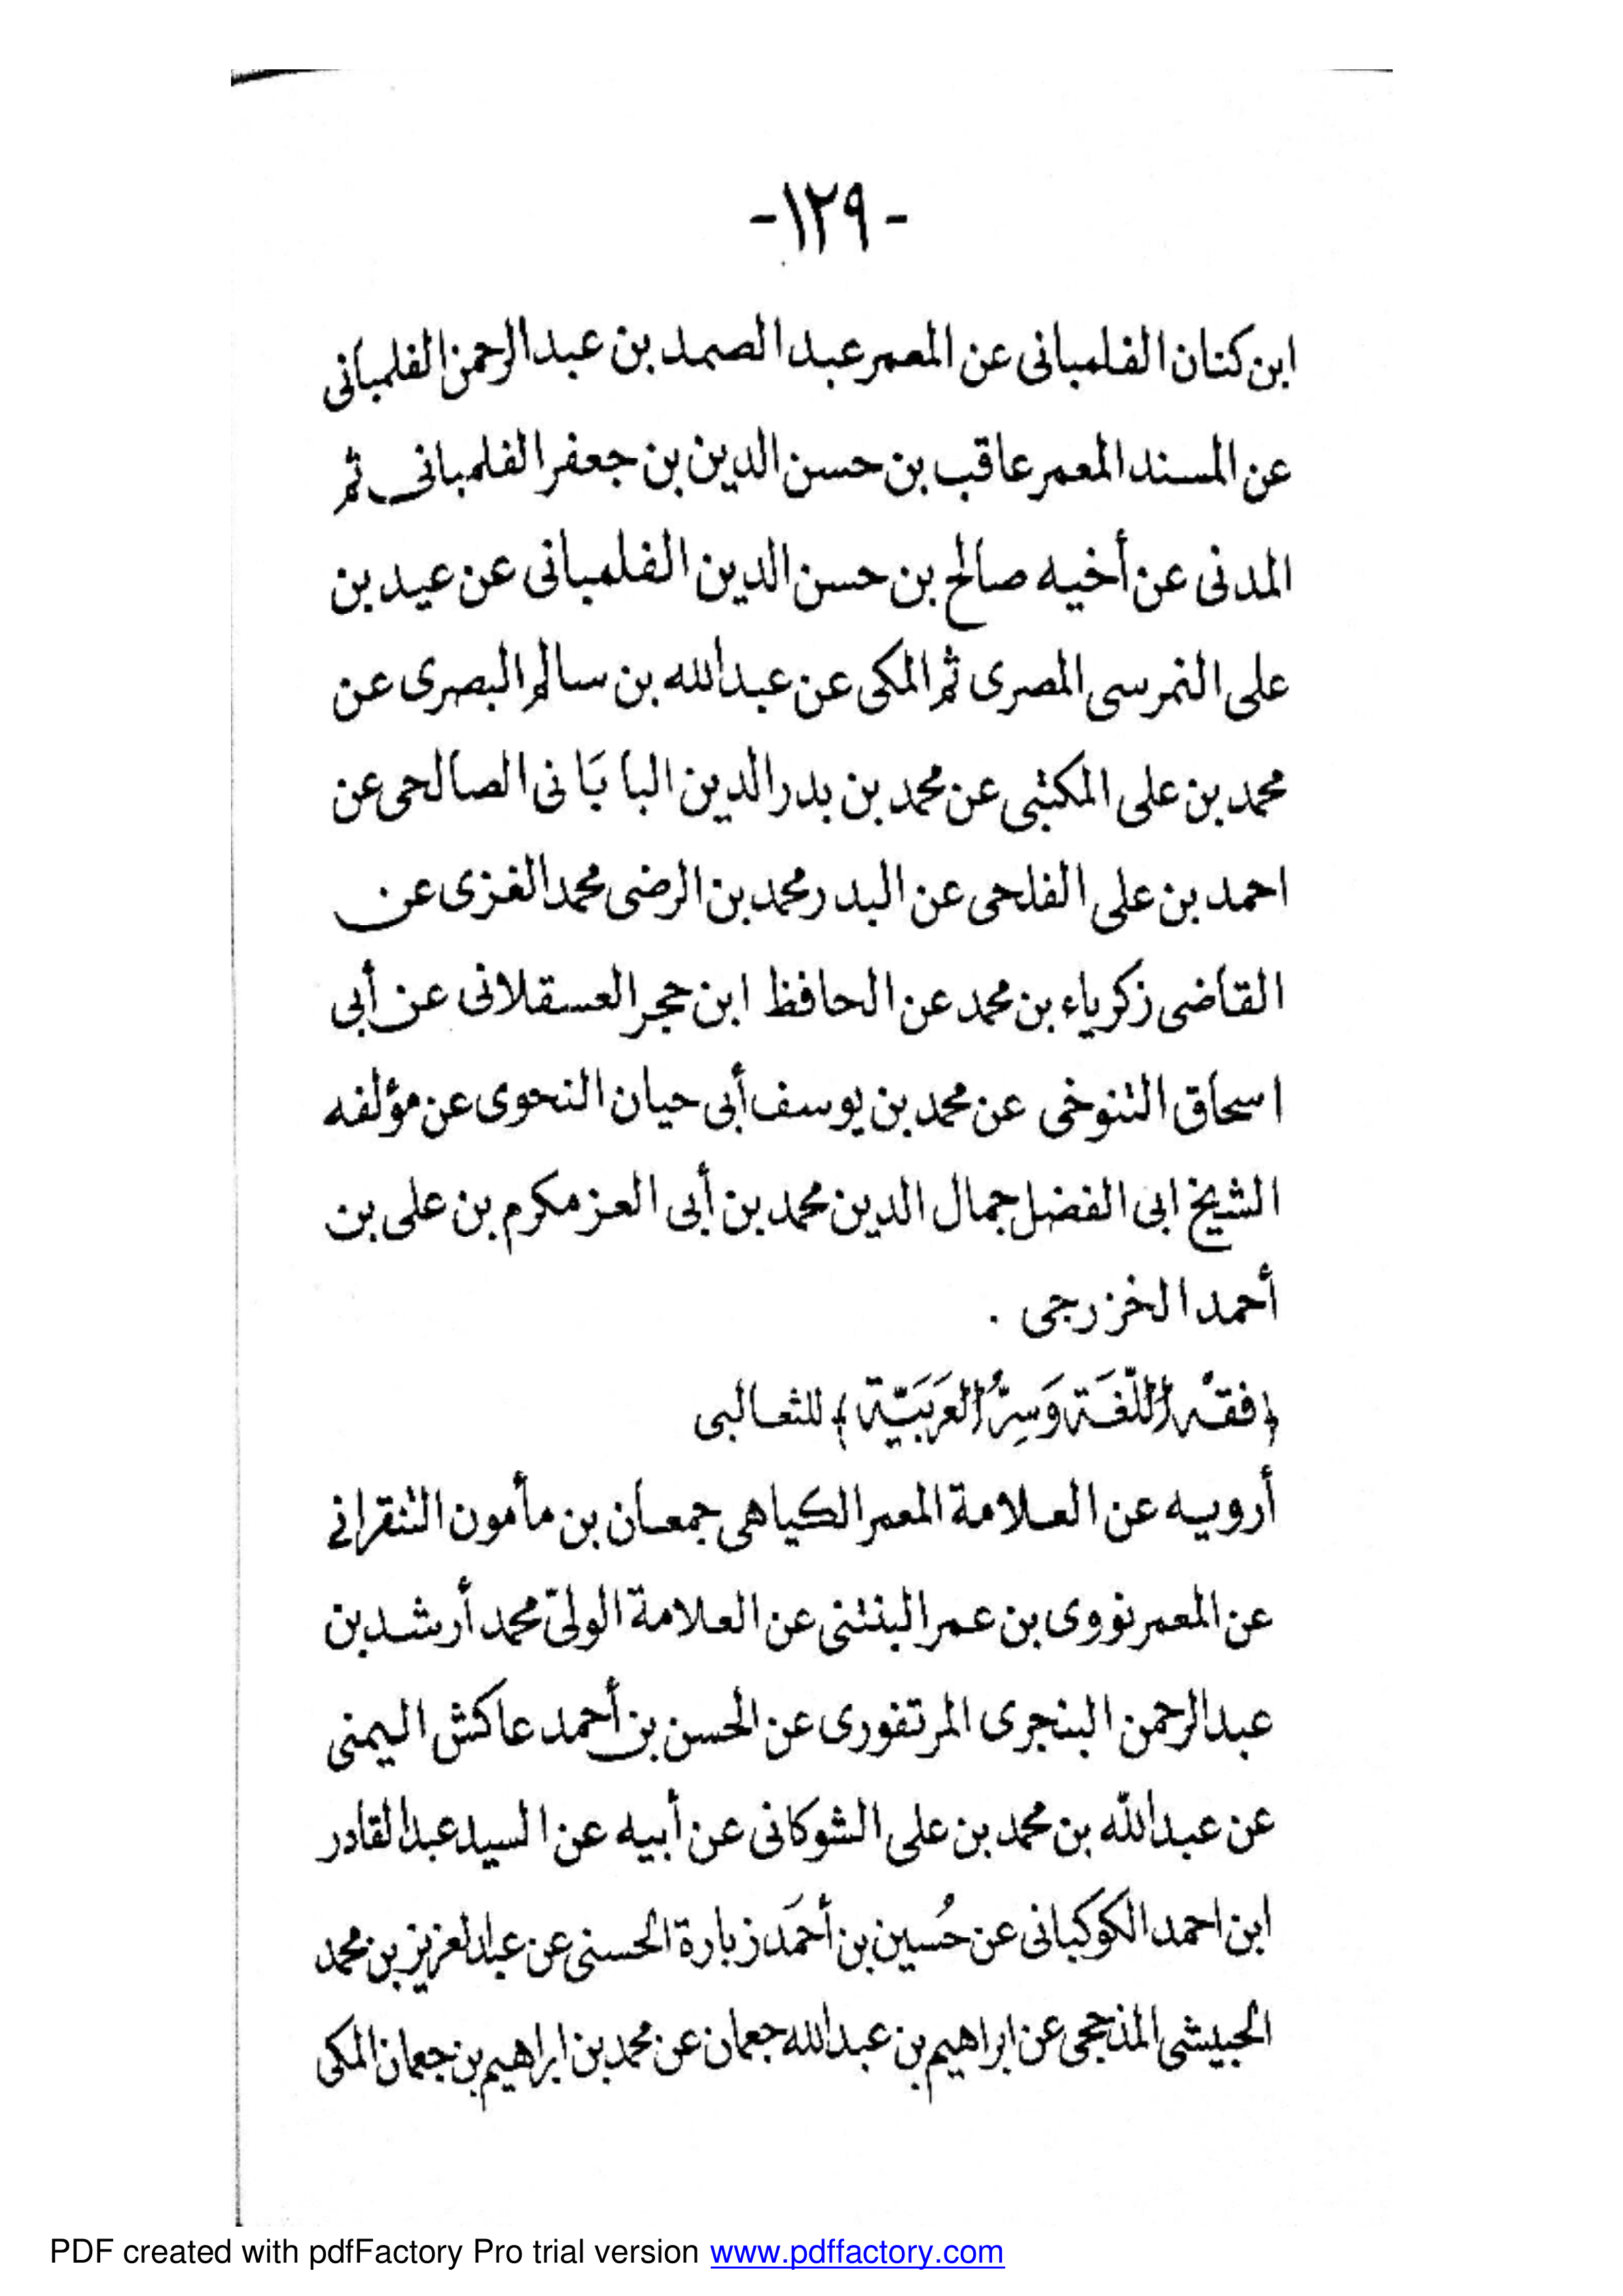 -١٢٩-
ابن كنان الفلمبانى عن المعمر عبد الصمد بن عبد الرحمن الفلمبانى
عن المسند المعمر عاقب بن حسن الدين بن جعفر الفلمبانى ثم
المدنى عن أخيه صالح بن حسن الدين الفلمبانى عن عيد بن
على النمرسى المصرى ثم المكى عن عبد الله بن سالم البصرى عن
محمد بن على المكتبى عن محمد بن بدر الدين البابَانى الصالحى عن
احمد بن على الفلحى عن البدر محمد بن الرضى محمد الغزى عن
القاضى زكرياء بن محمد عن الحافظ ابن حجر العسقلانى عن أبى
اسحاق التنوخى عن محمد بن يوسف أبى حيان النحوى عن مؤلفه
الشيخ ابى الفضل جمال الدين محمد بن أبى العز مكرم بن على بن
أحمد الخزرجى .
﴿فقْه اللّغَة وَسِرُّ العَرَبَيّة﴾ للثعالبى
أرويه عن العلامة المعمر الكياهى جمعان بن مأمون التنقرانى
عن المعمر نووى بن عمر البنتنى عن العلامة الولىّ محمد أرشد بن
عبد الرحمن البنجرى المرتفورى عن الحسن بن أحمد عاكش اليمنى
عن عبد الله بن محمد بن على الشوكانى عن أبيه عن السيد عبد القادر
ابن احمد الكوكبانى عن حُسين بن أحمَد زبارة الحسنى عن عبد العزيز بن محمد
الحبيشى المذحجى عن ابراهيم بن عبد الله جعمان عن محمد بن ابراهيم بن جعمان المكى
PDF created with pdfFactory Pro trial version www.pdffactory.com